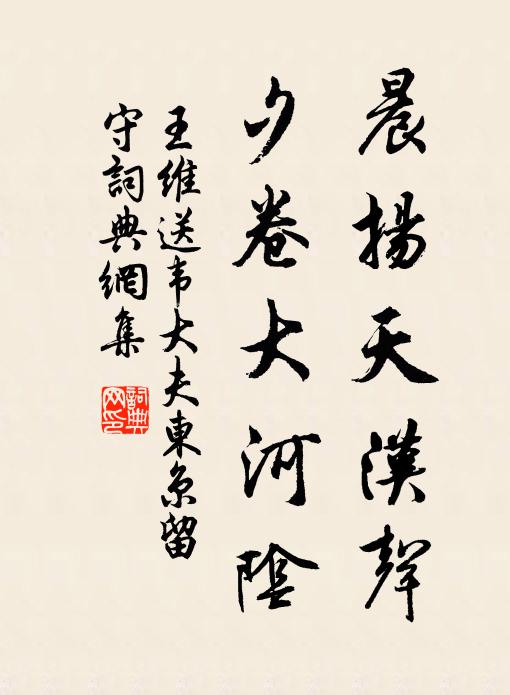 晨揚天漢聲
夕卷大河陰
王維送韦大夫東京留
守詞典網集
詞典
网印